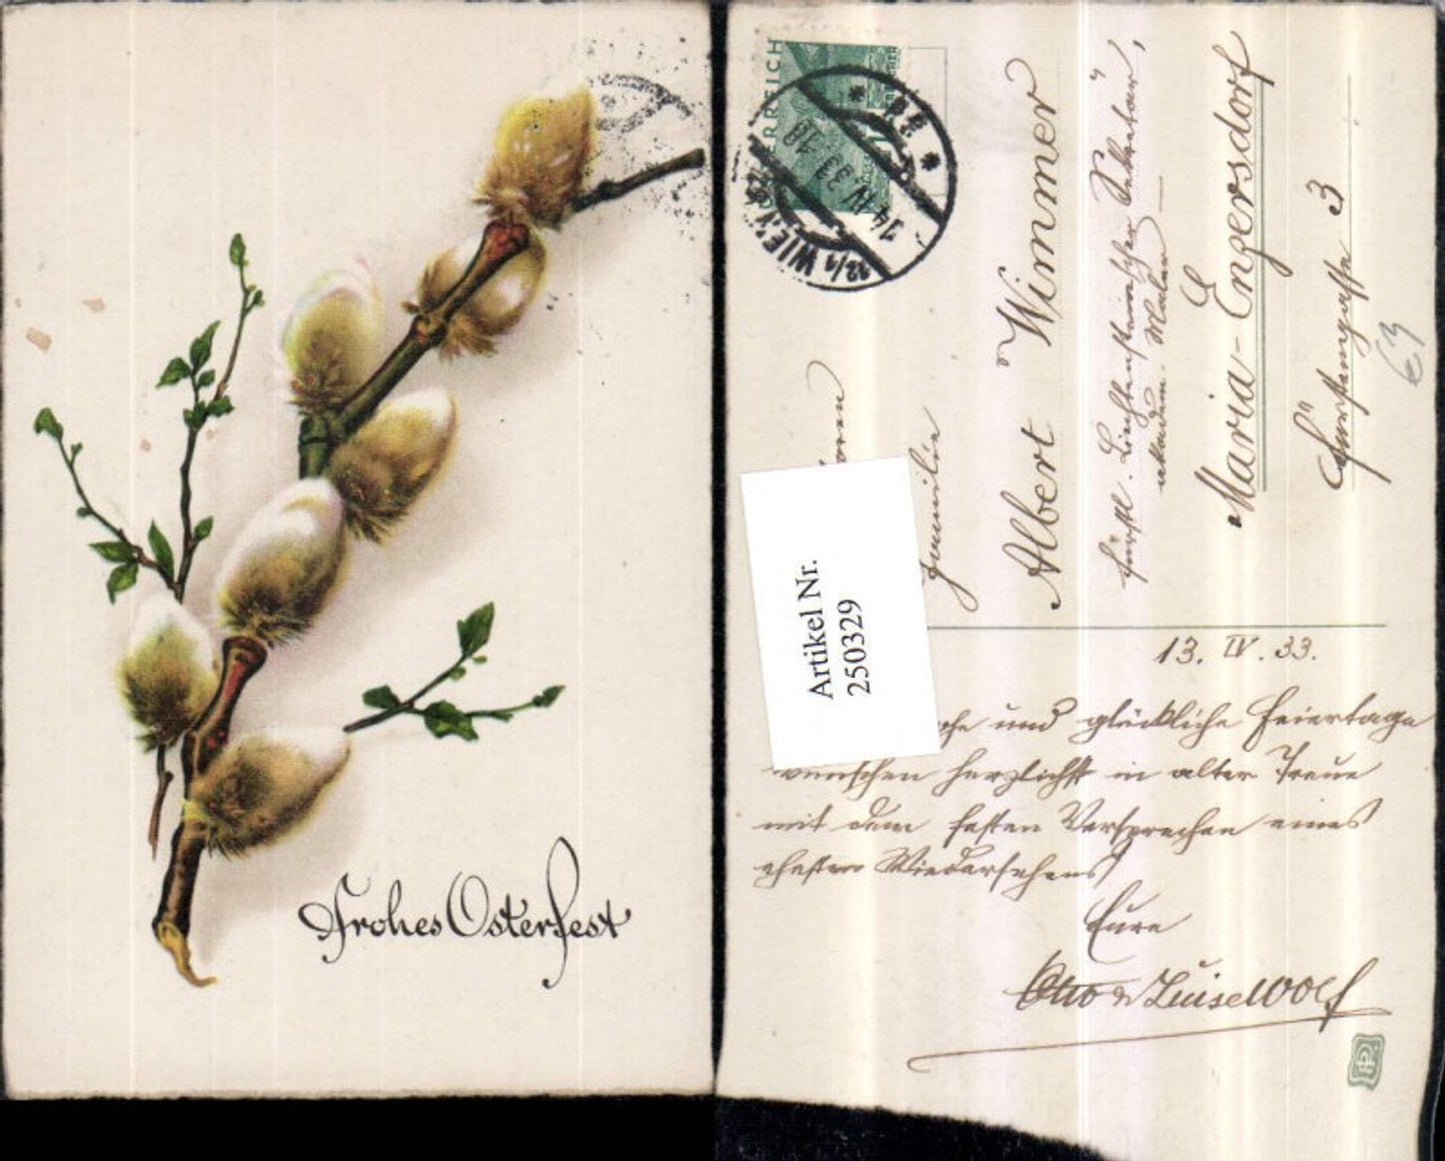 Frohes Osterfest
ERREICH
WIEN
14.IV.33.-18
Familie
Albert Wimmer
fürstl. Liechtensteinischer Sekretär,
akadem. Maler —
Maria-Enzersdorf
Fürstengasse 3
63
Artikel Nr.
250329
13. IV. 33.
und glückliche Feiertage
wünschen herzlichst in alter Treue
mit dem festen Versprechen eines
ehesten Wiedersehens
Eure
Otto u Luise Wolf